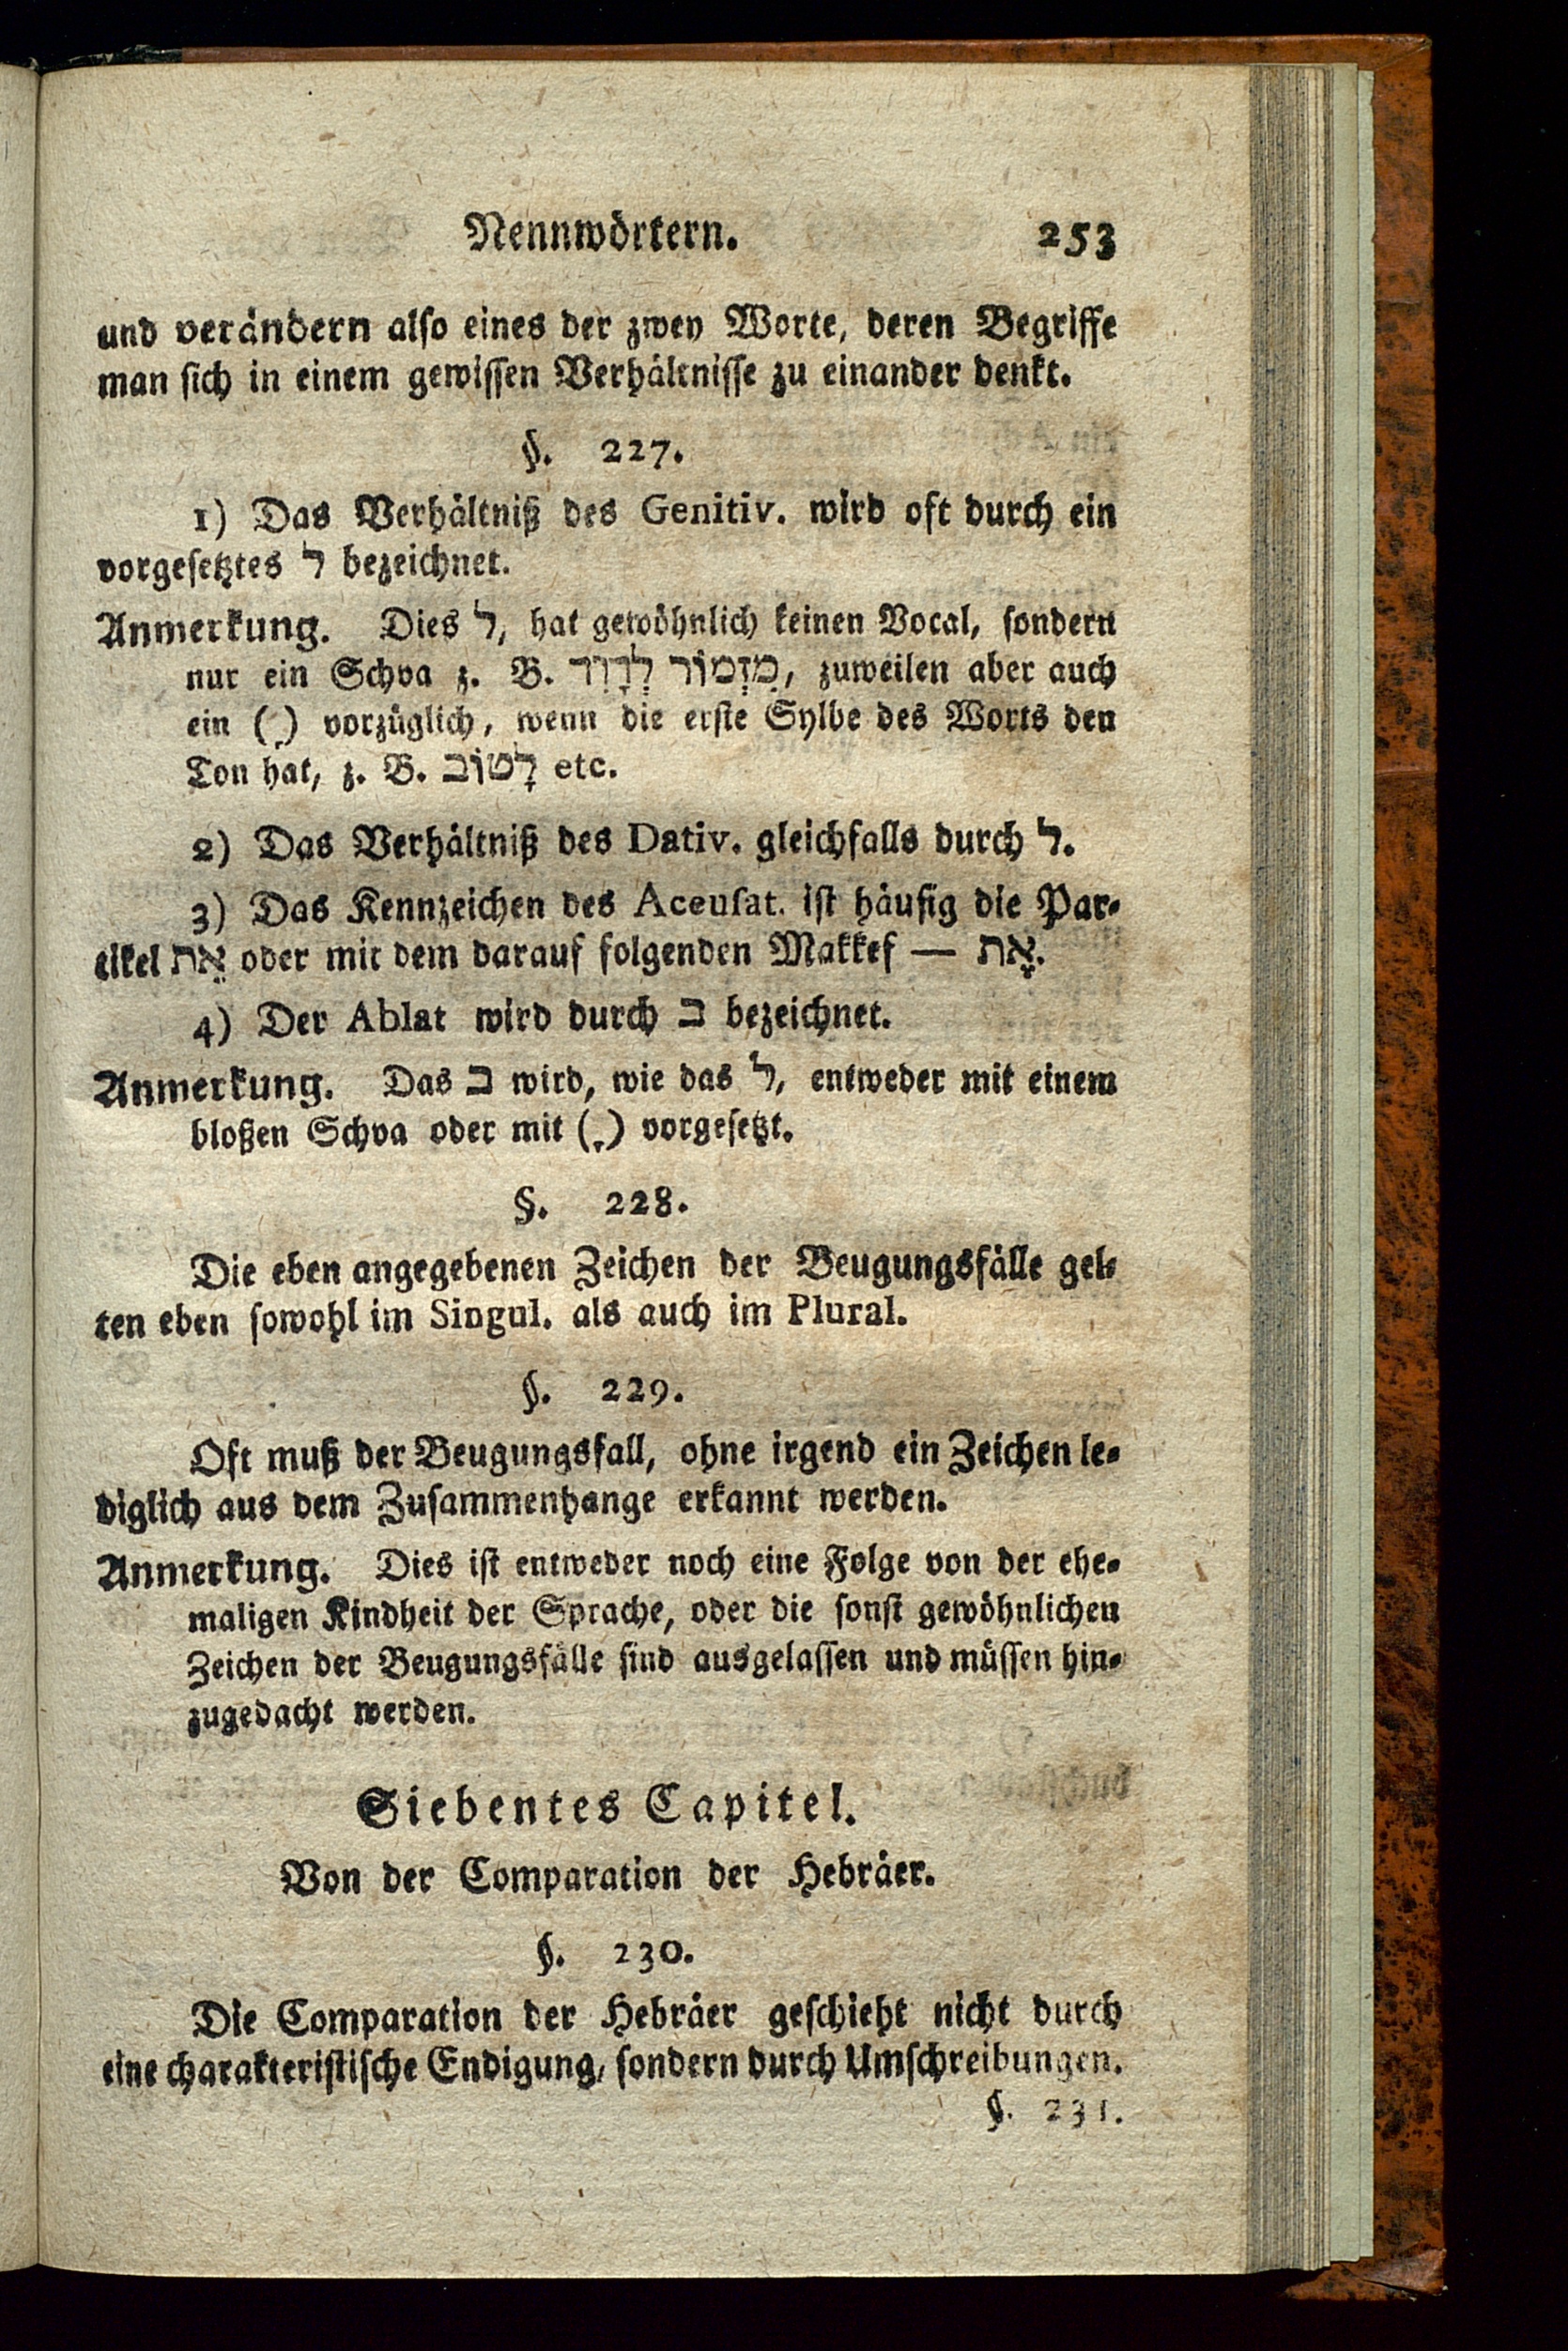 Nennwörtern. 253
und verändern also eines der zwey Worte, deren Begriffe
man sich in einem gewissen Verhältnisse zu einander denkt.
§. 227.
1) Das Verhältniß des Genitiv. wird oft durch ein
vorgesetztes ל bezeichnet.
Anmerkung. Dies ל, hat gewöhnlich keinen Vocal, sondern
nur ein Schva z. B. מִזְמוֹר לְדָוִד, zuweilen aber auch
ein (ָ) vorzüglich, wenn die erste Sylbe des Worts den
Ton hat, z. B. לָטוֹב etc.
2) Das Verhältniß des Dativ. gleichfalls durch ל.
3) Das Kennzeichen des Aceusat. ist häufig die Par-
tikel אֵת oder mit dem darauf folgenden Makkef — אֶת.
4) Der Ablat wird durch ב bezeichnet.
Anmerkung. Das ב wird, wie das ל, entweder mit einem
bloßen Schva oder mit (ָ) vorgesetzt.
§. 228.
Die eben angegebenen Zeichen der Beugungsfälle gel-
ten eben sowohl im Singul. als auch im Plural.
§. 229.
Oft muß der Beugungsfall, ohne irgend ein Zeichen le-
diglich aus dem Zusammenhange erkannt werden.
Anmerkung. Dies ist entweder noch eine Folge von der ehe-
maligen Kindheit der Sprache, oder die sonst gewöhnlichen
Zeichen der Beugungsfälle sind ausgelassen und müssen hin-
zugedacht werden.
Siebentes Capitel.
Von der Comparation der Hebräer.
§. 230.
Die Comparation der Hebräer geschieht nicht durch
eine charakteristische Endigung, sondern durch Umschreibungen.
§. 231.